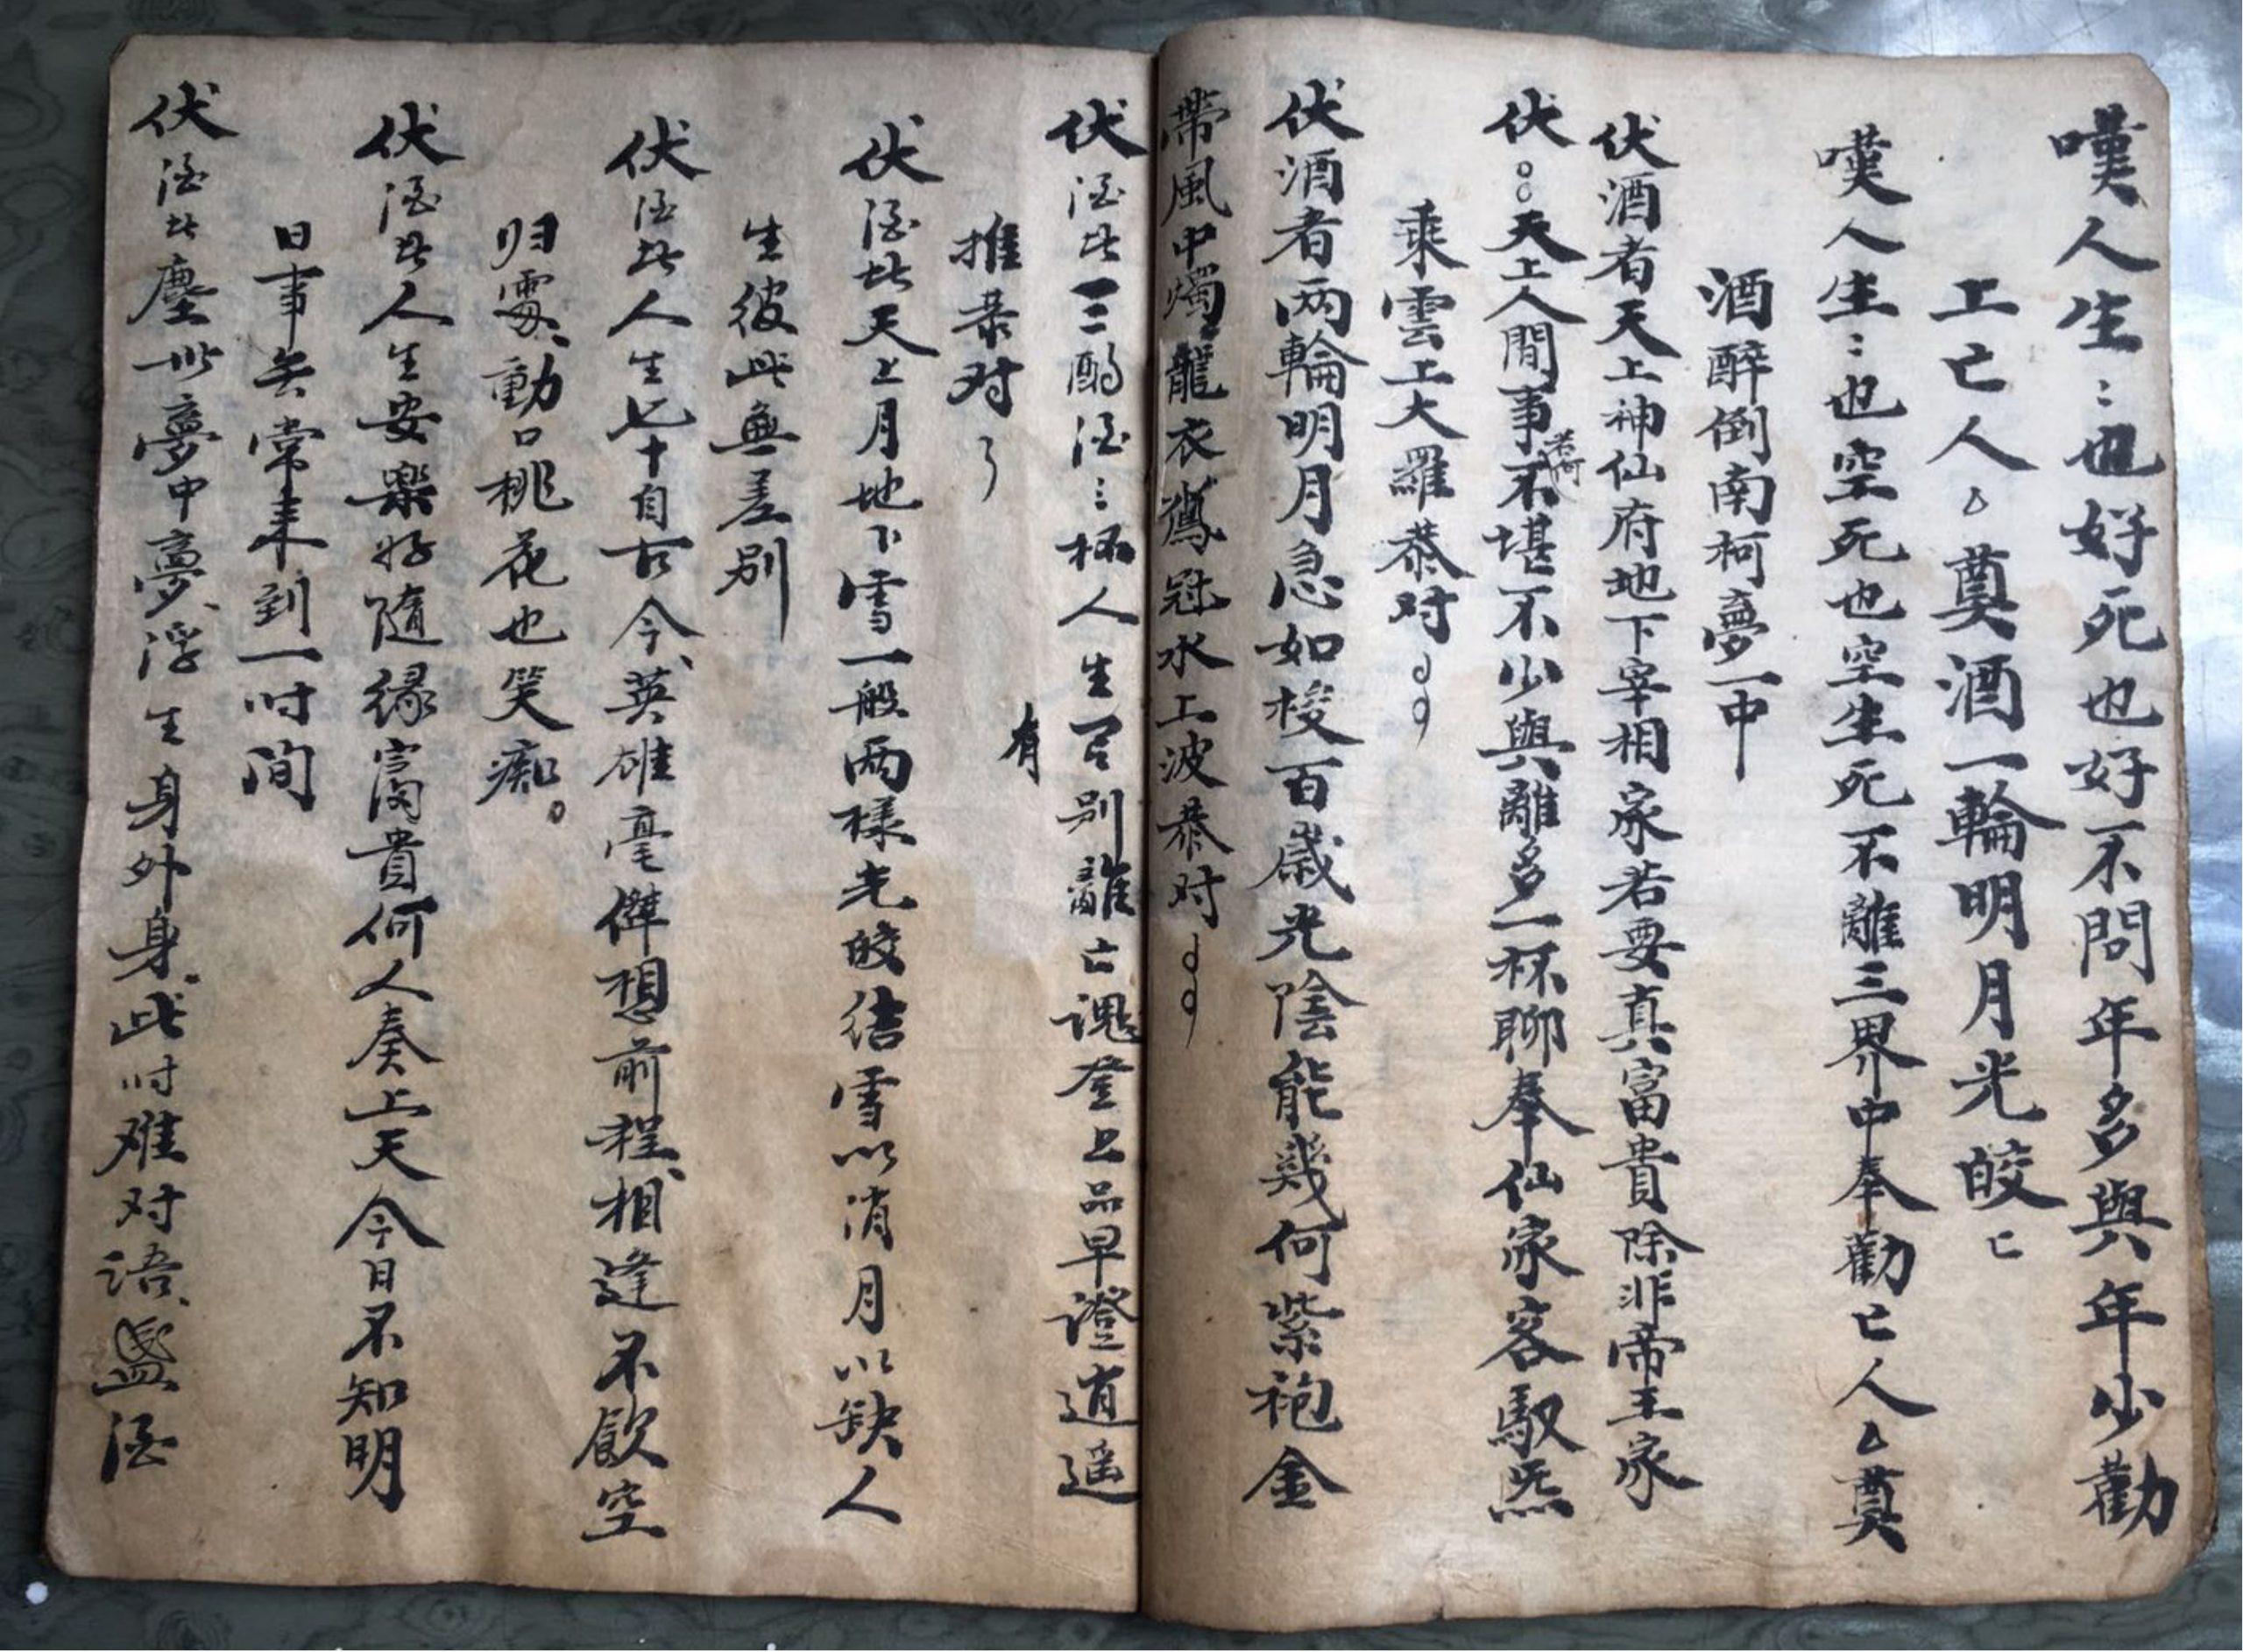 嘆人生：也好死也好不問年多與年少勸
上亡人△奠酒一輪明月光皎匕
嘆人生：也空死也空生死不離三界中奉勸亡人△奠
酒醉倒南柯夢一中
伏酒者天上神仙府地下宰相家若要真富貴除非帝王家
伏〇〇天上人間事不堪不少與離多一杯聊奉仙家客馭炁
乘雲上大羅恭对
伏酒者两輪明月急如梭百歲光陰能幾何紫袍金
帶風中燭龍衣鳳冠水上波恭对
伏酒此三酌酒：極人生有别離亡魂登上品早證逍遥
有
推恭对
伏酒此天上月地下雪一般两樣光皎结雪以消月以缺人
生彼此無差别
伏酒此人生七十自古今英雄毫傑想前程相逢不飲空
归處動口桃花也笑痴
伏酒此人生安樂好隨緣富貴何人奏上天今日不知明
日事无常来到一时间
伏酒此塵世夢中夢浮生身外身此时难对语盞酒